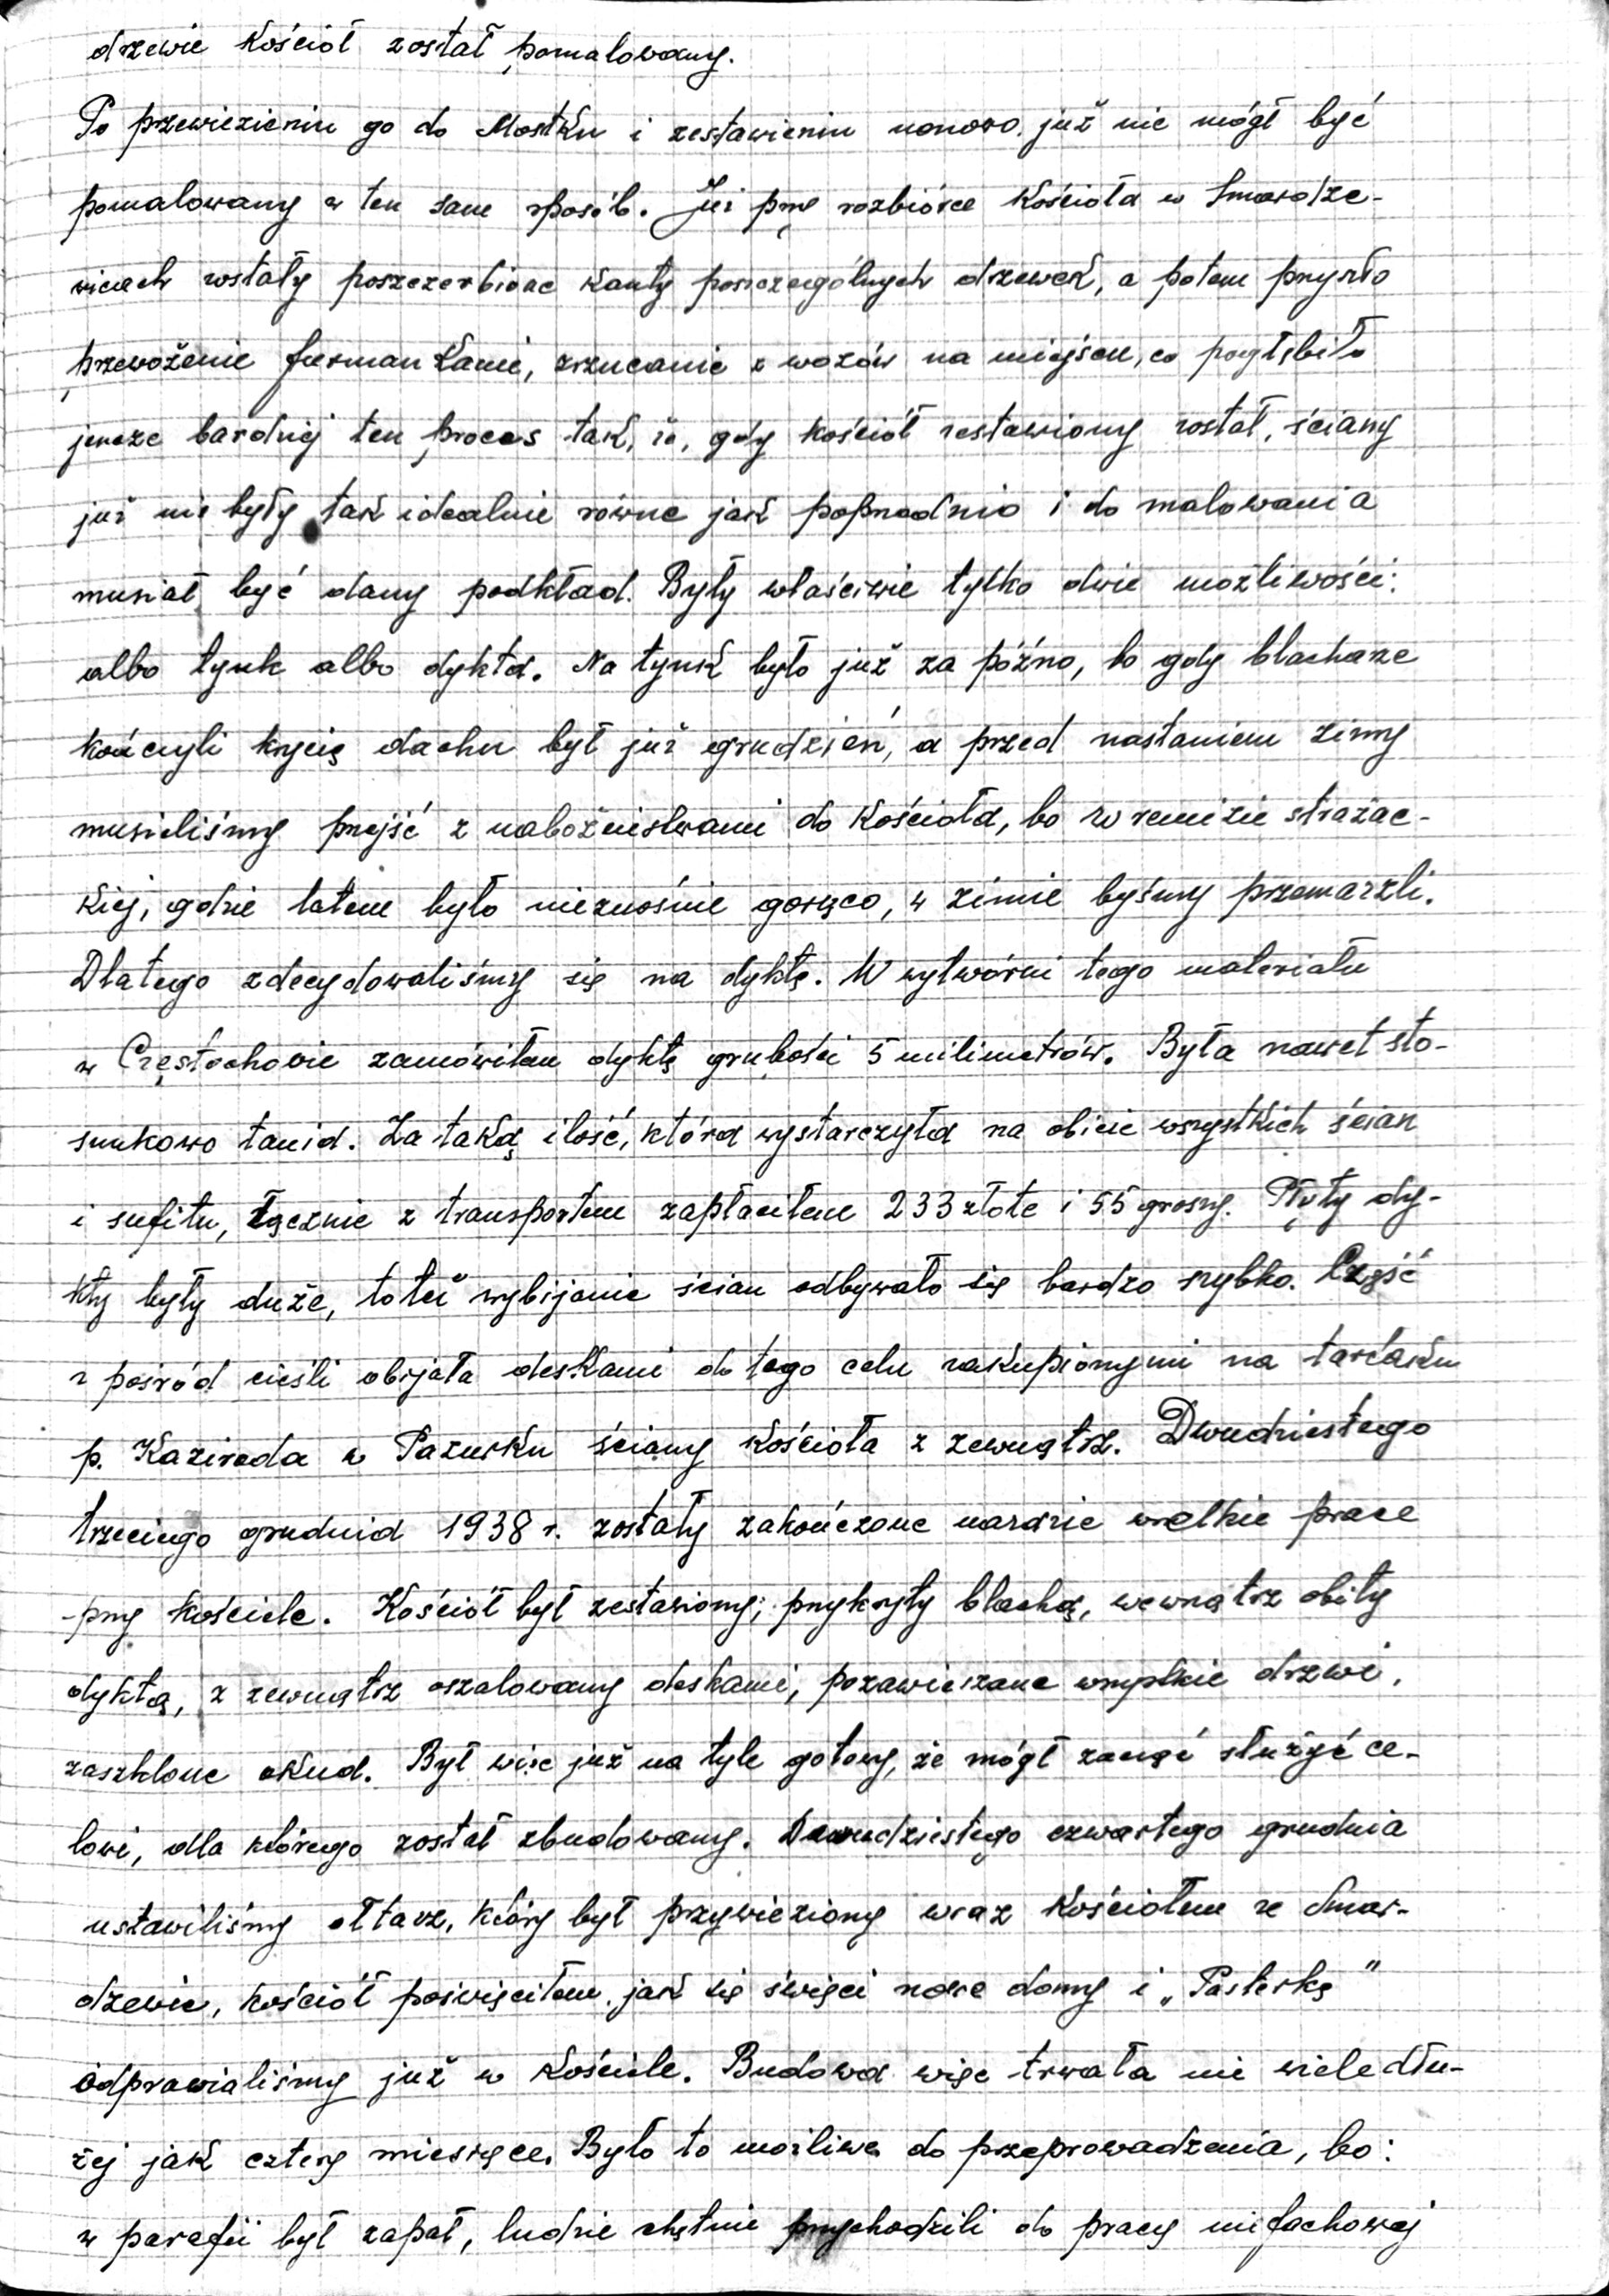 drzewie kościół został pomalowany.
Po przewiezieniu go do Mostku i zestawieniu nanowo, już nie mógł być
pomalowany w ten sam sposób. Już przy rozbiórce kościoła w Smardze-
wicach zostały poszczerbione kanty poszczególnych drzewek, a potem przyszło
przewożenie furmankami, zrzucanie z wozów na miejscu, co pogłębiło
jeszcze bardziej ten proces tak, że, gdy kościół zestawiony został, ściany
już nie były tak idealnie równe jak poprzednio i do malowania
musiał być dany podkład. Były właściwie tylko dwie możliwości:
albo tynk albo dykta. Na tynk było już za późno, bo gdy blacharze
kończyli krycie dachu był już grudzień, a przed nastaniem zimy
musieliśmy przejść z nabożeństwami do kościoła, bo w remizie strażac-
kiej, gdzie latem było nieznośnie gorąco, w zimie byśmy przemarzli.
Dlatego zdecydowaliśmy się na dyktę. W wytwórni tego materiału
w Częstochowie zamówiłem dyktę grubości 5 milimetrów. Była nawet sto-
sunkowo tania. Za taką ilość, która wystarczyła na obicie wszystkich ścian
i sufitu, łącznie z transportem zapłaciłem 233 złote i 55 groszy. Płyty dy-
kty były duże, toteż wybijanie ścian odbywało się bardzo szybko. Część
z pośród cieśli obijała deskami do tego celu zakupionymi na tartaku
p. Kazireda w Pazurku ściany kościoła z zewnątrz. Dwudziestego
trzeciego grudnia 1938 r. zostały zakończone narazie wszelkie prace
przy kościele. Kościół był zestawiony, przykryty blachą, wewnątrz obity
dyktą, z zewnątrz oszalowany deskami, pozawieszane wszystkie drzwi,
zaszklone okna. Był więc już na tyle gotowy, że mógł zacząć służyć ce-
lowi, dla którego został zbudowany. Dwudziestego czwartego grudnia
ustawiliśmy ołtarz, który był przywieziony wraz kościołem ze Smar-
dzewic, kościół poświęciłem, jak się święci nowe domy i „Pasterkę"
odprawialiśmy już w kościele. Budowa więc trwała nie wiele dłu-
żej jak cztery miesiące. Było to możliwe do przeprowadzenia, bo:
w parafii był zapał, ludzie chętnie przychodzili do pracy niefachowej